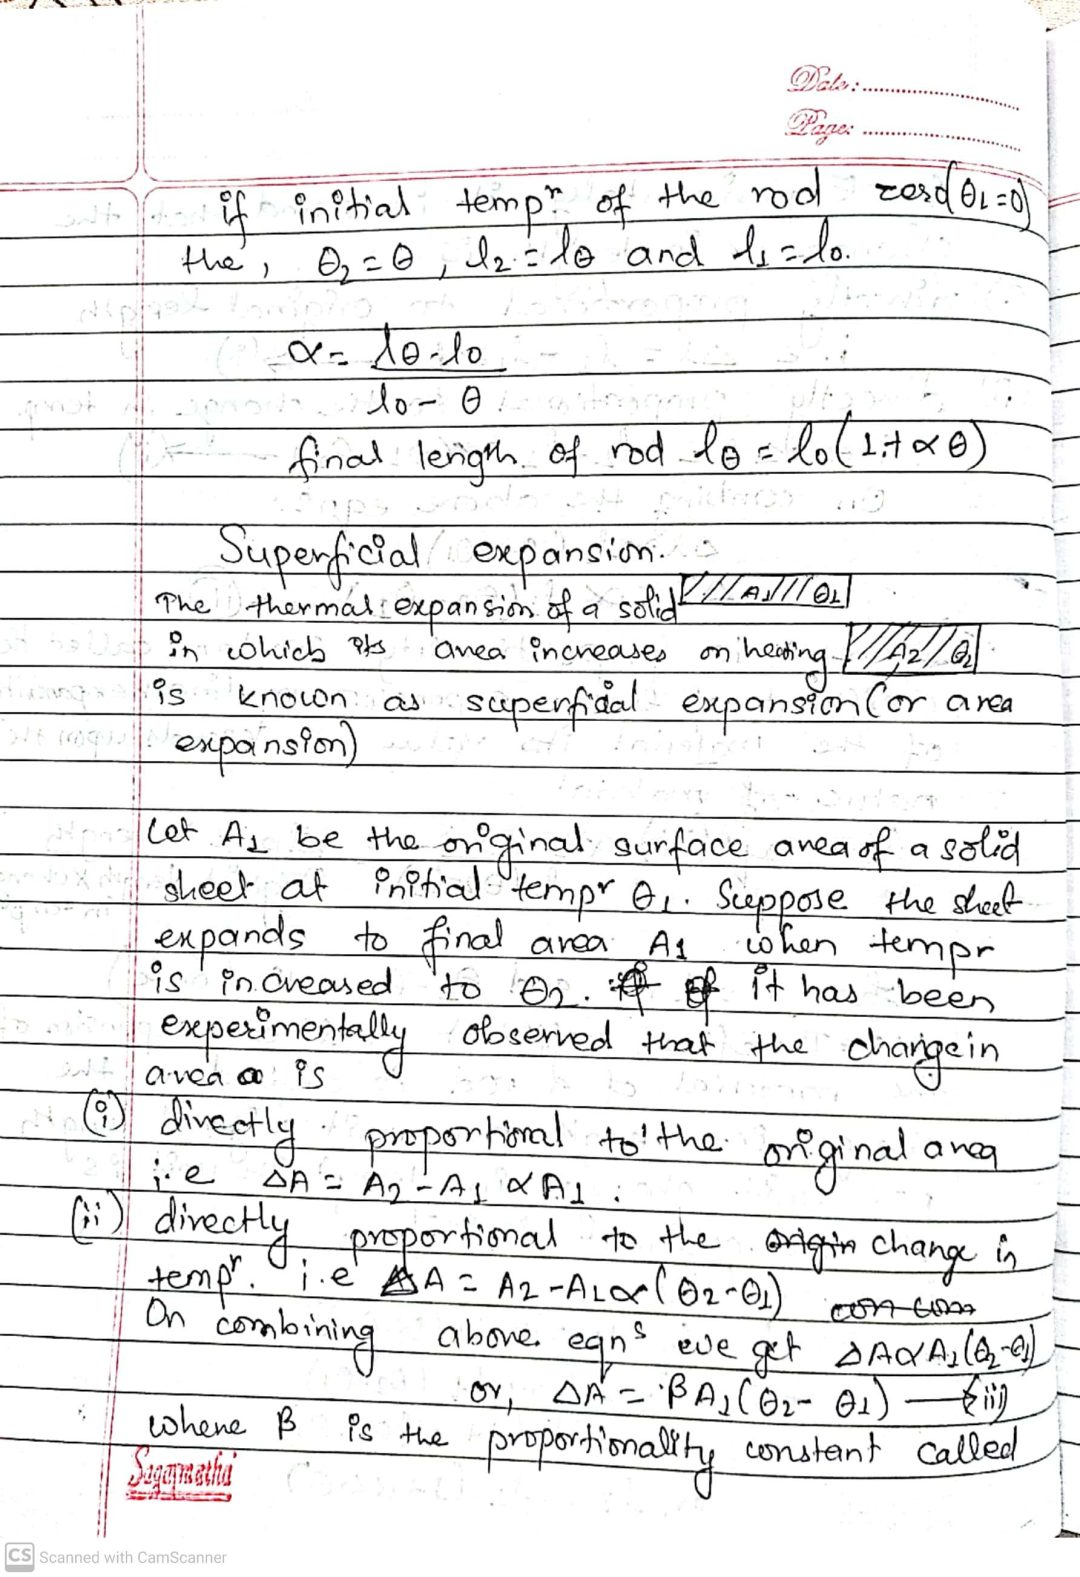 Date:
Page:
if initial tempr of the rod zero(θ1=0)
the, θ2=θ, l2=lθ and l1=l0.
α= lθ-l0
l0-θ
final length of rod lθ=l0(1+αθ)
Superficial expansion.
The thermal expansion of a solid A1 θ1
in which its area increases on heating A2 θ2
is known as superfidal expansion (or area
expansion)
Let A1 be the original surface area of a solid
sheet at initial tempr θ1. Suppose the sheet
expands to final area A1 when tempr
is increased to θ2. it has been
experimentally observed that the change in
area is
(i) directly proportional to the original area
i.e ΔA = A2-A1 ∝ A1.
(ii) directly proportional to the origin change in
tempr. i.e ΔA = A2-A1∝(θ2-θ1)
On combining above eqns we get ΔA∝A1(θ2-θ1)
or, ΔA = βA1(θ2-θ1) —(iii)
where β is the proportionality constant called
Sagarmatha
CS Scanned with CamScanner